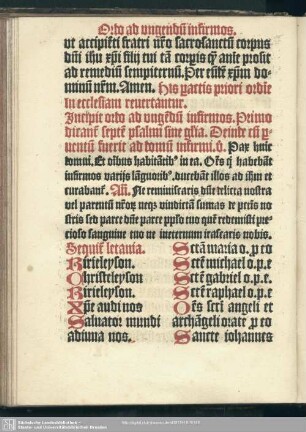 Ordo ad vngendū infirmos.
vt accipiēti fratri nr̄o sacrosanctū corpus
dn̄i ihu xp̄i filij tui tā corpis q̄ aīe prosit
ad remediū sempiternū. Per eūdē xp̄m do⸗
minū nr̄m. Amen. His pactis priori ordīe
in ecclesiam reuertantur.
Incipit ordo ad vngendū infirmos. Primo
dicant̄ septē psalmi sine glīa. Deinde cū
uentū fuerit ad domū infirmi. Pax huic
domui. Et oībus habitātib⁹ in ea. Oēs q̄ habebāt
infirmos varijs lāguorib⁹. ducebant illos ad ihm et
curabant̄. Añ. Ne reminiscaris dn̄e delicta nostra
vel parentū nr̄oꝝ neqꝫ vindictā sumas de pctīs no⸗
stris sed parce dn̄e parce pplo tuo quē redemisti pre⸗
cioso sanguine tuo ne ineternum irascaris nobis.
Sequit̄ letania.
Kirieleyson.
Christeleyson
Kirieleyson.
Xp̄e audi nos
Saluator mundi
adiuua nos.
Sctā maria o. p co
Sctē michael o.p.e
Sctē gabriel o.p.e.
Sctē raphael o.p.e
Oēs scti angeli et
archāgeli orate p co
Sancte iohannes